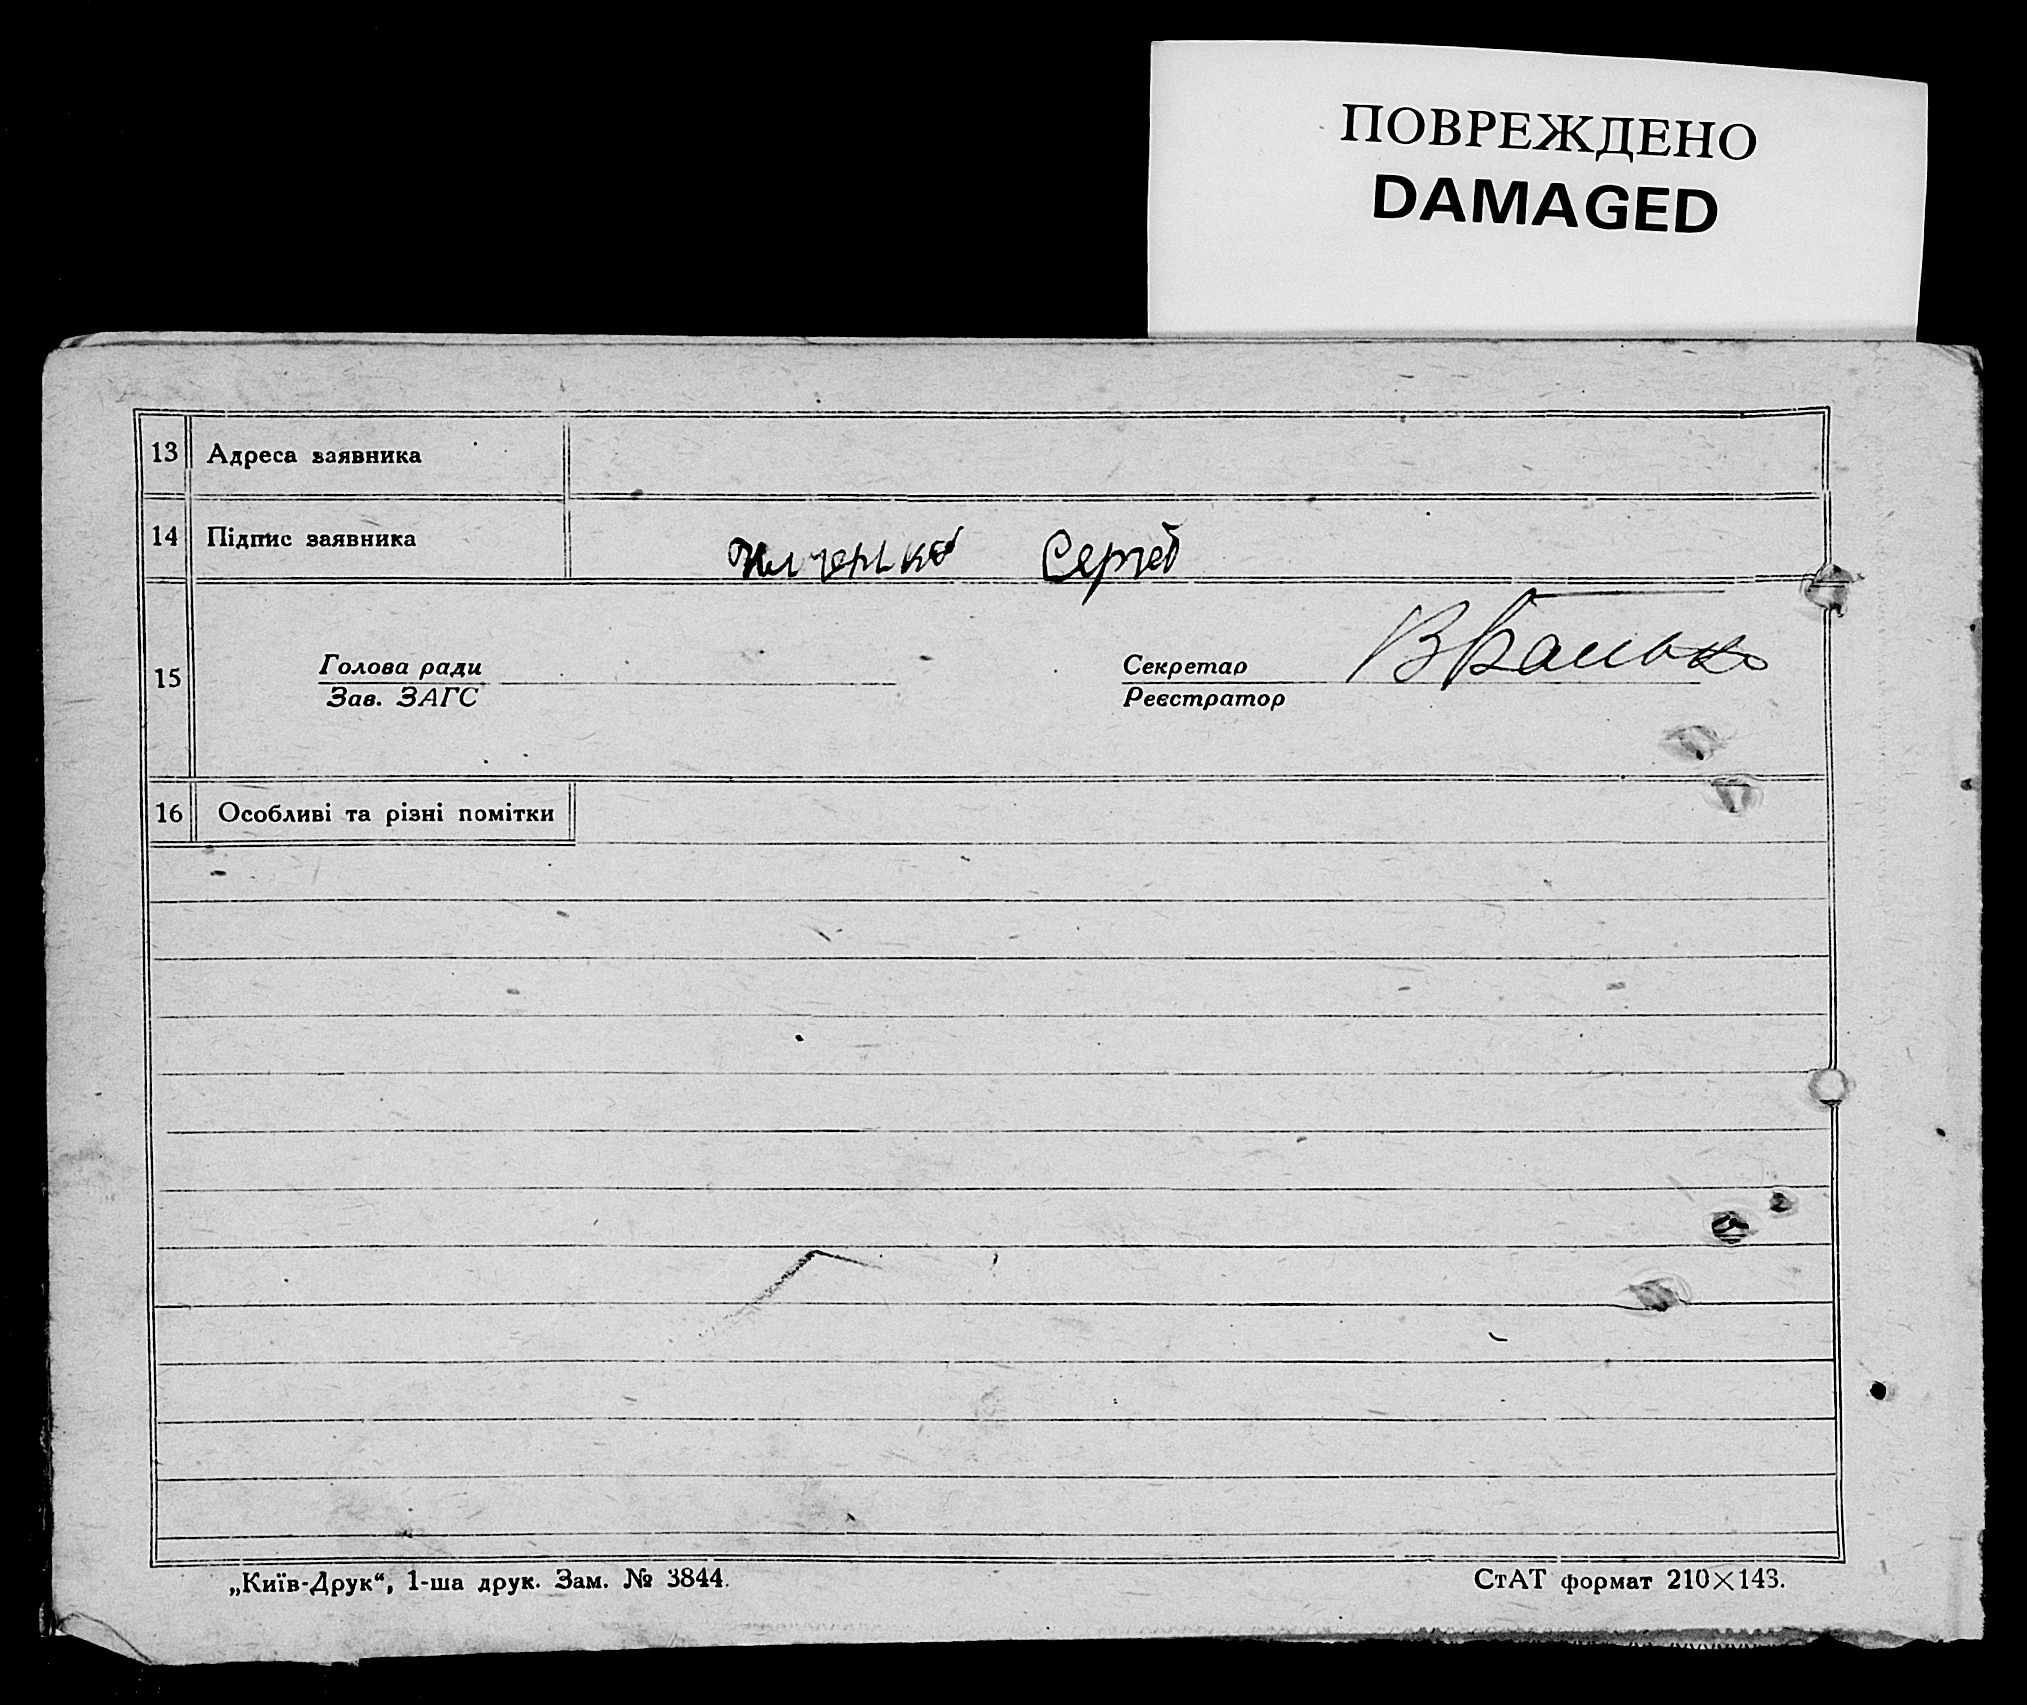 ПОВРЕЖДЕНО
DAMAGED
13 Адреса заявника
14 Підпис заявника Сергей
15 Голова ради Секретар
Зав. ЗАГС Реєстратор
16 Особливі та різні помітки
„Київ-Друк“, 1-ша друк. Зам. № 3844. СтАТ формат 210×143.